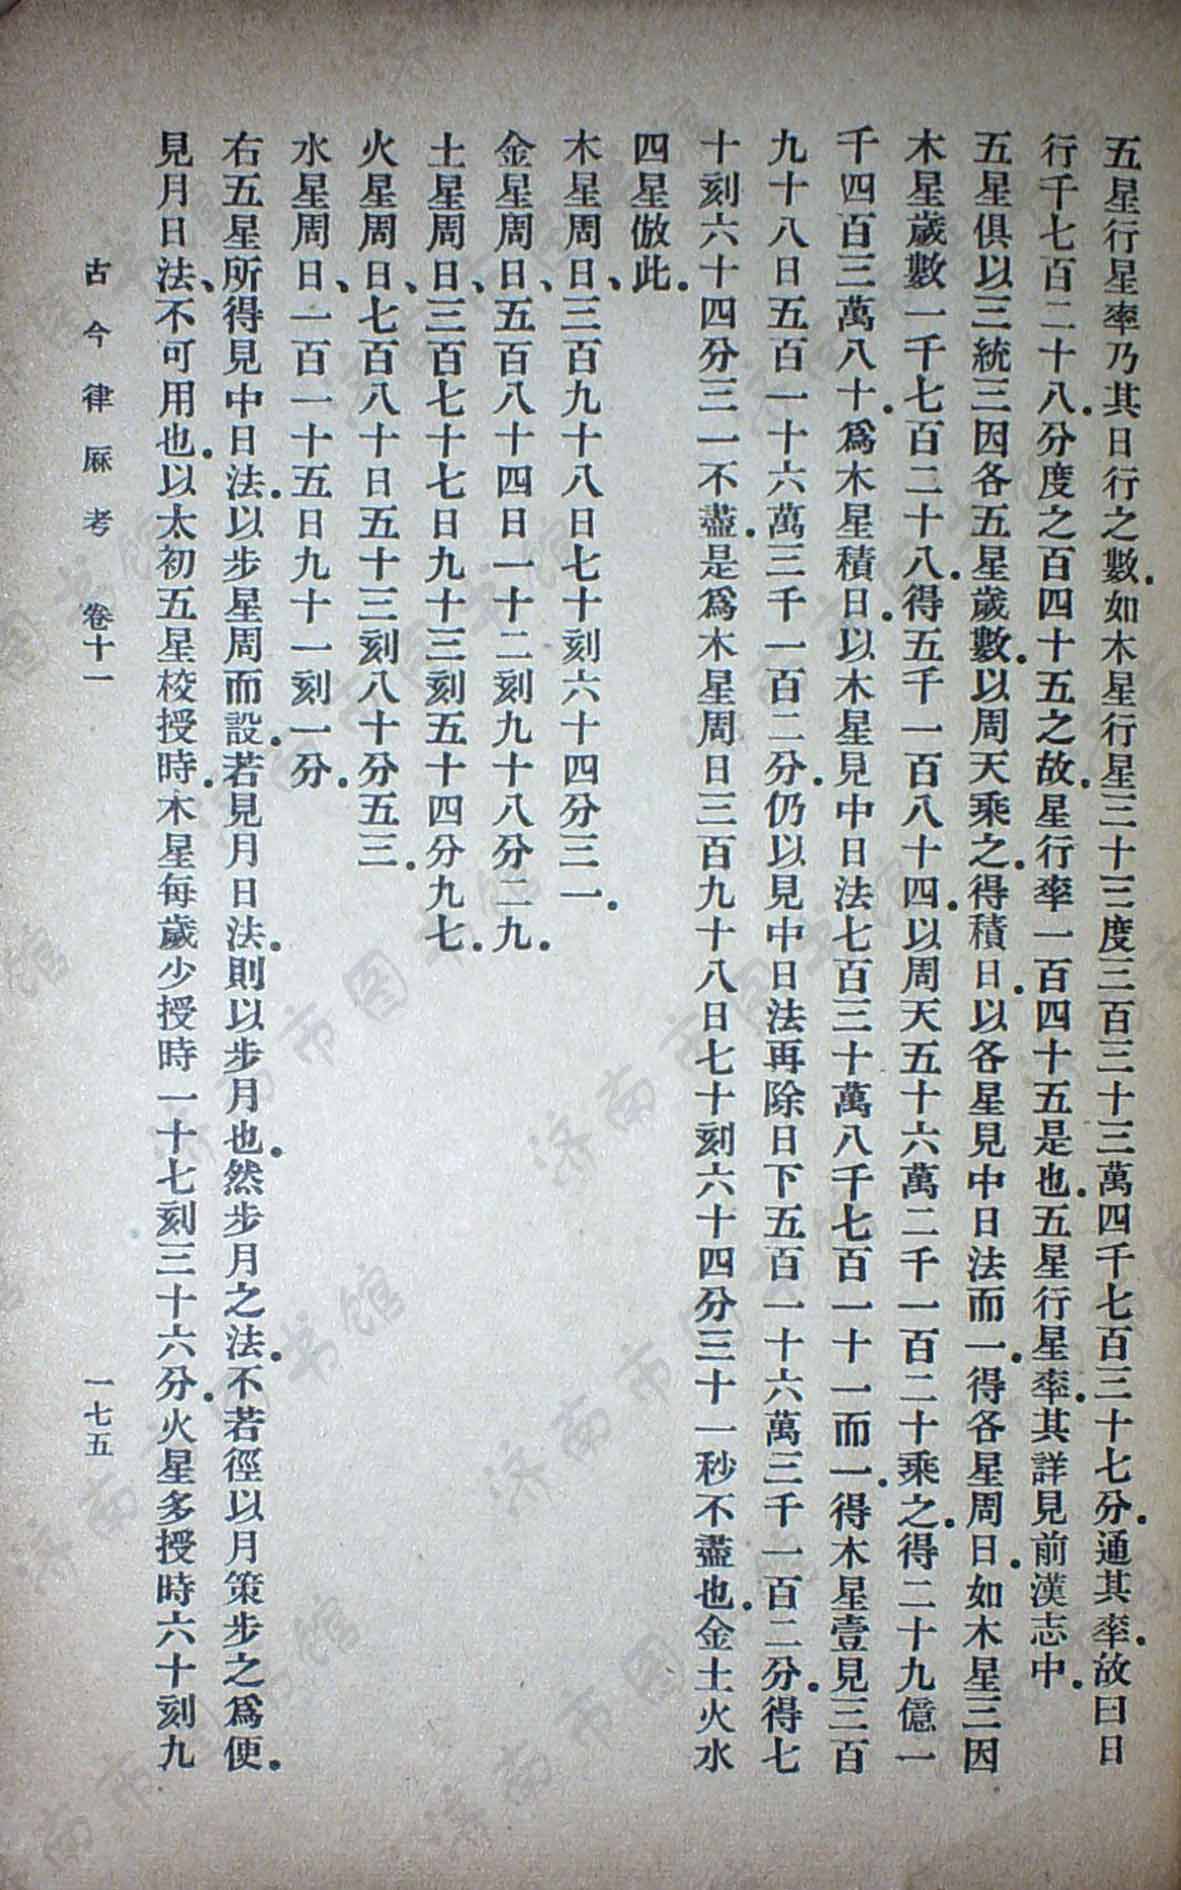 五星行星率乃其日行之數.如木星行星三十三度三百三十三萬四千七百三十七分.通其率.故曰日
行千七百二十八.分度之百四十五之故.星行率一百四十五是也.五星行星率.其詳見前漢志中.
五星俱以三統三因各五星歲數.以周天乘之.得積日.以各星見中日法而一.得各星周日.如木星三因
木星歲數一千七百二十八.得五千一百八十四.以周天五十六萬二千一百二十乘之.得二十九億一
千四百三萬八十.爲木星積日.以木星見中日法七百三十萬八千七百一十一而一.得木星壹見三百
九十八日五百一十六萬三千一百二分.仍以見中日法再除日下五百一十六萬三千一百二分.得七
十刻六十四分三一不盡.是爲木星周日三百九十八日七十刻六十四分三十一秒不盡也.金土火水
四星倣此.
木星周日、三百九十八日七十刻六十四分三一.
金星周日、五百八十四日一十二刻九十八分二九.
土星周日、三百七十七日九十三刻五十四分九七.
火星周日、七百八十日五十三刻八十分五三.
水星周日、一百一十五日九十一刻一分.
右五星所得見中日法.以步星周而設.若見月日法.則以步月也.然步月之法.不若徑以月策步之爲便.
見月日法、不可用也.以太初五星校授時.木星每歲少授時一十七刻三十六分.火星多授時六十刻九
古今律厤考 卷十一 一七五
济南市图书馆
济南市图书馆
济南市图书馆
济南市图书馆